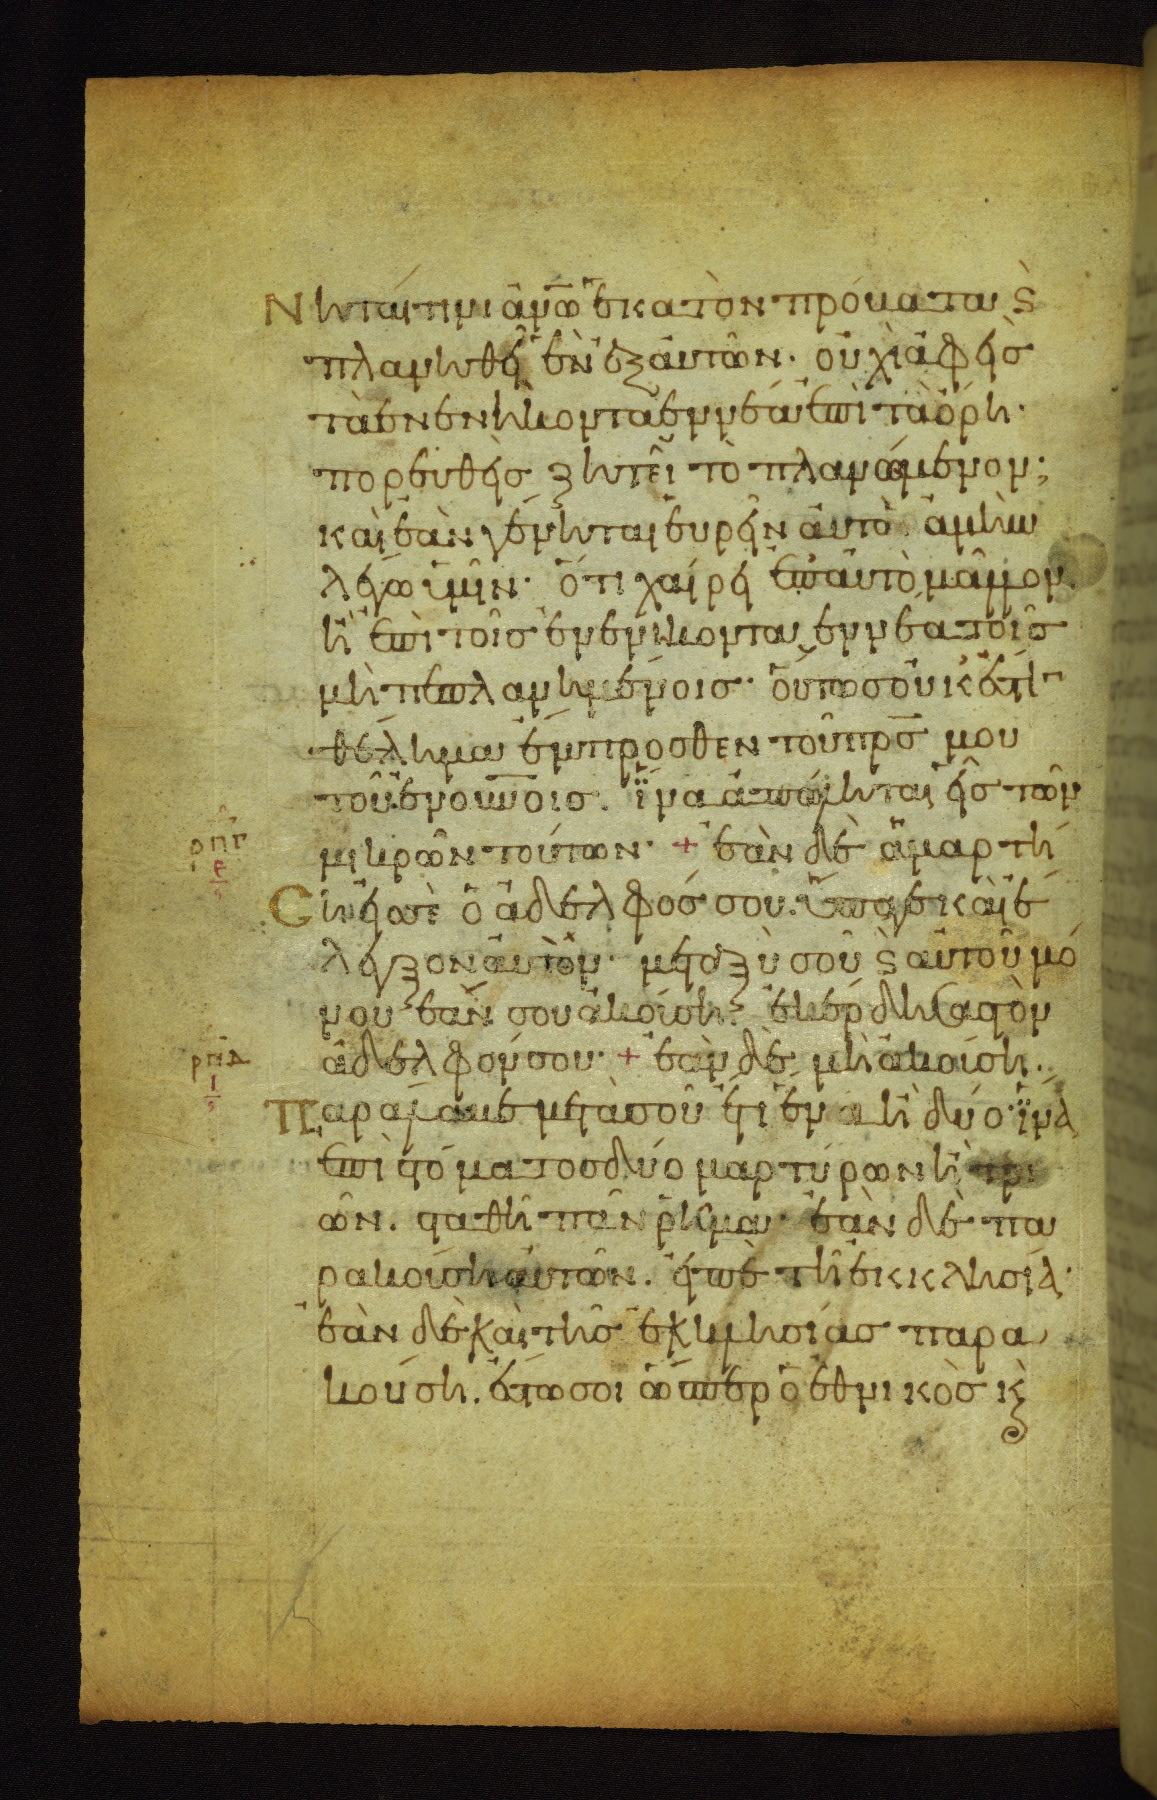 Νηται τινι ἀνω ἑκατὸν πρόβατα ϛ
πλανηθῆ ἓν ἐξ αὐτῶν· οὐχὶ ἀφεὶσ
τὰ ἐνενηκονταεννέα ἐπὶ τὰ ὄρη·
πορευθεὶσ ζητεῖ τὸ πλανώμενον;
καὶ ἐὰν γένηται εὑρεῖν αὐτὸ ἀμὴν
λέγω ὑμῖν· ὅτι χαίρει ἐπ αὐτὸ μᾶλλον
ἢ ἐπὶ τοῖσ ἐνενήκοντα ἐννέα τοῖσ
μὴ πεπλανημένοισ· οὕτωσ οὐκ ἔστι
θέλημα ἔμπροσθεν τοῦ πρσ μου
τοῦ ἐν οὐνοισ. ἵνα ἀπόληται εἷσ τῶν
ρπγ
ε
μικρῶν τούτων· + ἐὰν δὲ ἁμαρτή
Ση εἰσ σὲ ὁ ἀδελφόσ σου. ὕπαγε καὶ ἔ
λεγξον αὐτὸν· μεταξὺ σοῦ ϛ αὐτοῦ μό
νου· ἐάν σου ἀκούση· ἐκέρδησασ τὸν
ρπδ
ι
ἀδελφόν σου· + ἐὰν δὲ μὴ ἀκούση.
Παράλαβε μετὰ σοῦ ἔτι ἕνα ἢ δύο· ἵνα
ἐπὶ στόματοσ δύο μαρτύρων ἢ τρι
ῶν. σταθῆ πᾶν ῥῆμα· ἐὰν δὲ πα
ρακούση αὐτῶν. εἰπὲ τῆ ἐκκλησία·
ἐὰν δὲ καὶ τῆσ ἐκκλησίασ παρα
κούση. ἔστω σοι ὥσπερ ὁ ἐθνικὸσ κ